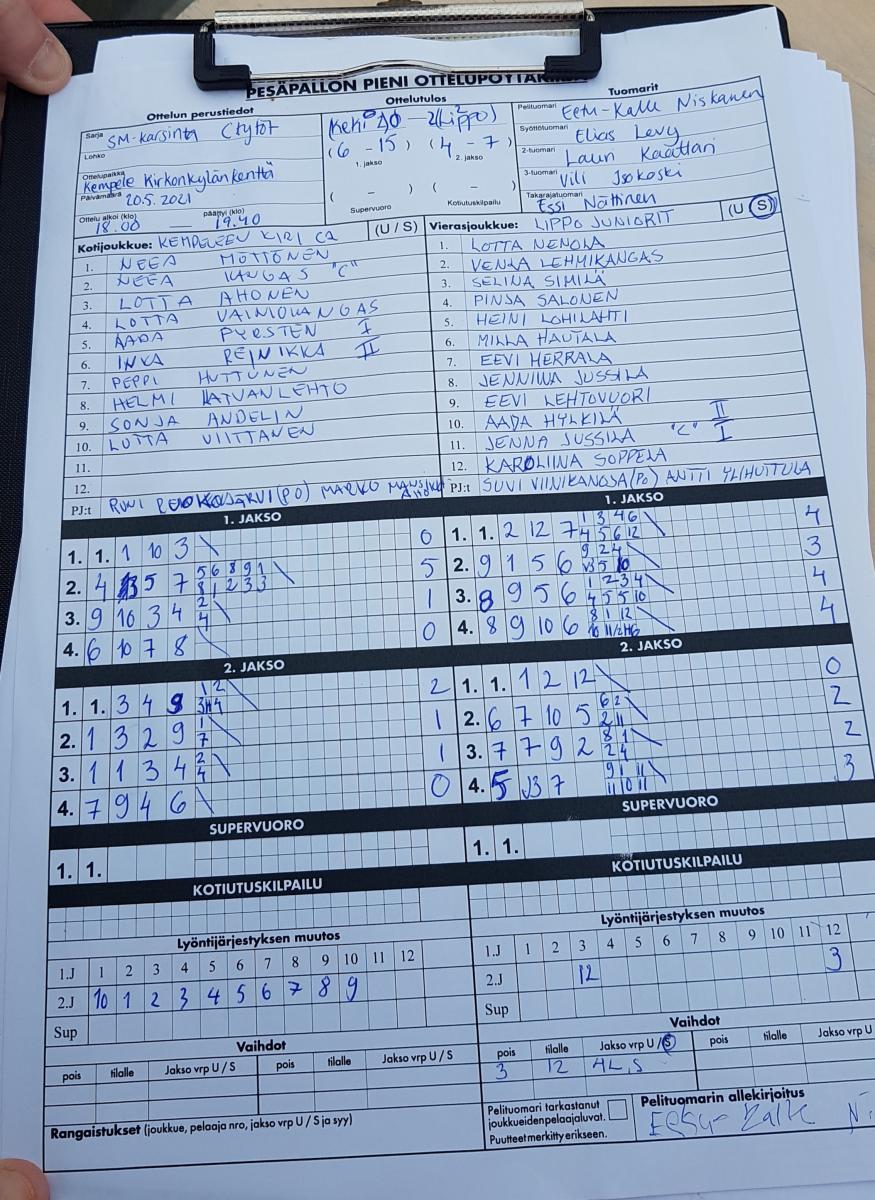 PESÄPALLON PIENI OTTELUPÖYTÄKIRJA
Ottelun perustiedot
Sarja SM-karsinta Ctytöt
Lohko
Ottelupaikka
Kempele Kirkonkylän kenttä
Päivämäärä 20.5.2021
Ottelu alkoi (klo) päättyi (klo)
18.00 — 19.40
Ottelutulos
KeKi 0 - 2 (Lippo)
(6 - 15) (4 - 7)
1. jakso 2. jakso
( - ) ( - )
Supervuoro Kotiutuskilpailu
Tuomarit
Pelituomari Eetu-Kalle Niskanen
Syöttötuomari Elias Levy
2-tuomari Lauri Kaattari
3-tuomari Vili Isokoski
Takarajatuomari Essi Nättinen
Kotijoukkue: KEMPELEEN KIRI C2 (U / S)
1. NEEA MÖTTÖNEN
2. NEEA KANGAS "C"
3. LOTTA AHONEN
4. LOTTA VAINIOKANGAS
5. AADA PYRSTEN I
6. INKA REINIKKA II
7. PEPPI HUTTUNEN
8. HELMI HATVANLEHTO
9. SONJA ANDELIN
10. LOTTA VIITTANEN
11.
12.
PJ:t (PO) MARKO
Vierasjoukkue: LIPPO JUNIORIT (U / S)
1. LOTTA NENOLA
2. VENLA LEHMIKANGAS
3. SELINA SIMILÄ
4. PINJA SALONEN
5. HEINI LOHILAHTI
6. MILLA HAUTALA
7. EEVI HERRALA
8. JENNIINA JUSSILA
9. EEVI LEHTOVUORI
10. AADA HYLKILÄ II
11. JENNA JUSSILA "C" I
12. KAROLIINA SOPPELA
PJ:t SUVI VIINIKANGSA (PO) ANTTI YLIHUITULA
1. JAKSO
1. 1. 1 10 3 0
2. 4 5 7 5 6 8 9 1 5
8 1 2 3 3
3. 9 10 3 4 2 1
4
4. 6 10 7 8 0
1. JAKSO
1. 1. 2 12 7 1 3 4 6 4
4 5 6 12
2. 9 1 5 6 9 2 4 3
V3 5 10
3. 8 9 5 6 1 2 3 4 4
4 5 5 10
4. 8 9 10 6 8 1 12 4
2. JAKSO
1. 1. 3 4 9 1 2 2
2. 1 3 2 9 1 1
7
3. 1 1 3 4 2 1
4
4. 7 9 4 6 0
2. JAKSO
1. 1. 1 2 12 0
2. 6 7 10 5 6 2 2
2 11
3. 7 7 9 2 8 1 2
2 4
4. 5 J3 7 9 1 11 3
11 10 11
SUPERVUORO
1. 1.
SUPERVUORO
1. 1.
KOTIUTUSKILPAILU
KOTIUTUSKILPAILU
Lyöntijärjestyksen muutos
1.J 1 2 3 4 5 6 7 8 9 10 11 12
2.J 10 1 2 3 4 5 6 7 8 9
Sup
Lyöntijärjestyksen muutos
1.J 1 2 3 4 5 6 7 8 9 10 11 12
2.J 12 3
Sup
Vaihdot
pois tilalle Jakso vrp U / S pois tilalle Jakso vrp U / S
Rangaistukset (joukkue, pelaaja nro, jakso vrp U / S ja syy)
Vaihdot
pois tilalle Jakso vrp U / S pois tilalle Jakso vrp U
3 12 4L,S
Pelituomari tarkastanut
joukkueidenpelaajaluvat.
Puutteet merkitty erikseen.
Pelituomarin allekirjoitus
Eetu-Kalle Ni